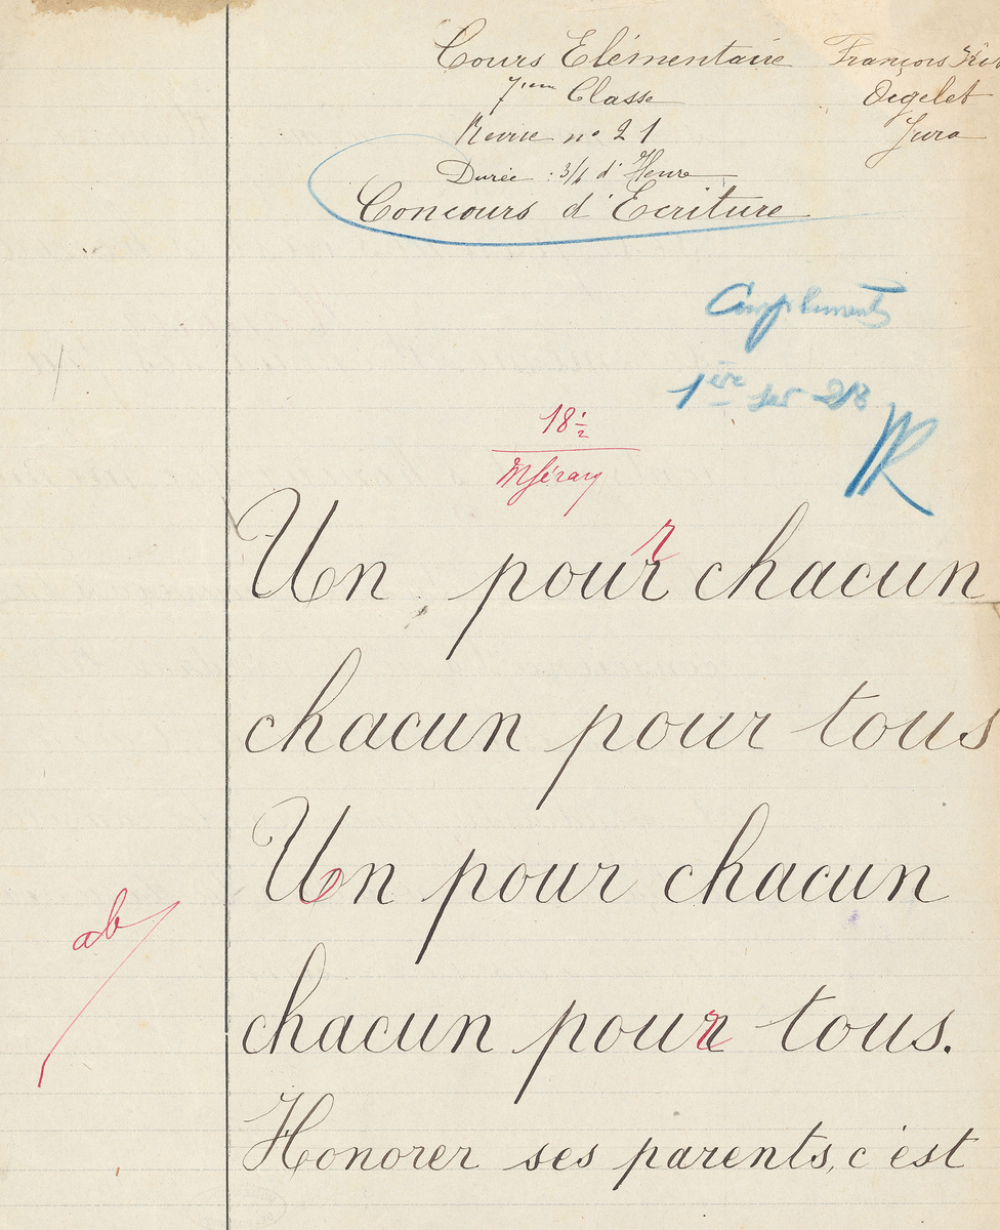 Cours Elémentaire
François
7ème Classe
Orgelet
Revue n° 21
Jura
Durée : 3/4 d'Heure
Concours d'Ecriture
Compliments
1ère sur 28
18 1/2
Un pour chacun
r
chacun pour tous
Un pour chacun
ab
chacun pour tous.
Honorer ses parents, c'est